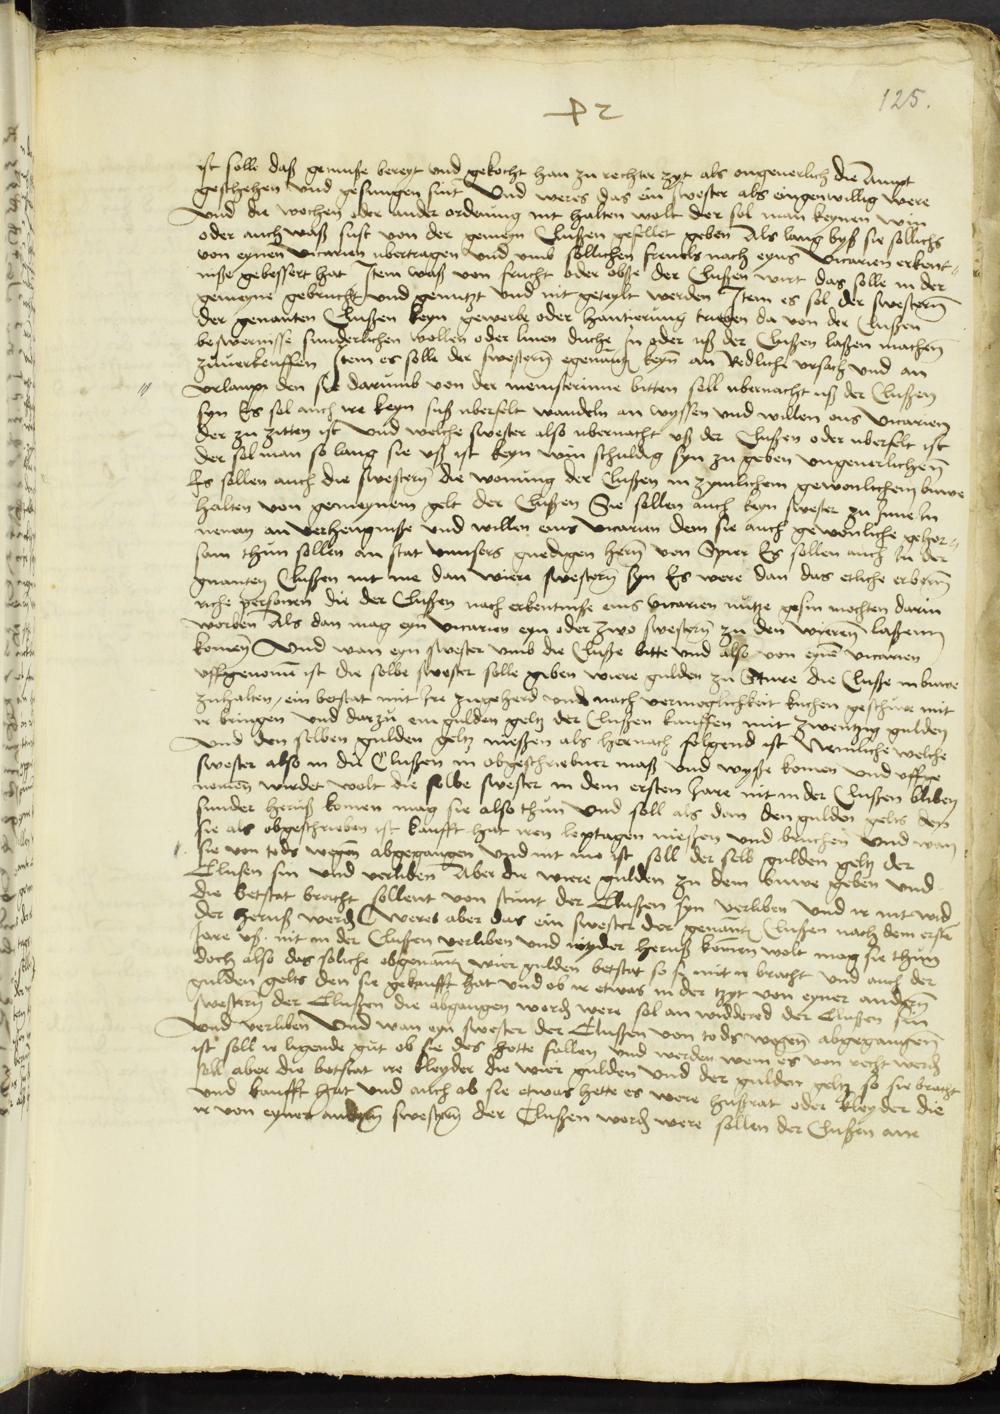 125.
ist solle daß gemuße bereyt und gekocht han zu rechter zyt als ongeuerlich die Ampt
geschehen und gesungen sint Und weres das ein swester als eingenwillig were
Und die wochen oder ander ordenung nit halten wolt der sol man keynen win
oder auch waß sust von der gemeyn Clußen gefellet geben Als lang byß sie sollichs
von eynem vicarien ubertragen und umb sollichen freuels nach eyns vicarien erkent
niße gebessert hat Item waß von frucht oder obße der Clußen wirt das solle in der
gemeyne gebrucht und genutzt und nit geteylt werden Item es sol der swestern
der genanten Clußen keyn gewerbe oder hantierung triben da von der Clußen
beswerniße sunderlichen wollen oder linen duche in oder uß der Clußen laßen machen
zuuerkeuffen Item es solle der swestern egenant keyn an Redliche ursach und an
urlaup den sie darumb von der meinsterinne bitten soll ubernacht uß der Clußen
syn Es sol auch ire keyn suß uberfelt wandeln an wyssen und willen eins vicarien
der zu zitten ist Und welche swester also ubernacht uß der Clußen oder uberfelt ist
der sol man so lang sie uß ist keyn win schuldig syn zu geben ungeuerlichen
Es sollen auch die swestern die wonung der Clußen in zymlichem gewonlichem buwe
halten von gemeynem gelt der Clußen Sie sollen auch keyn swester zu Inne in
nemen an verhengniße und willen eins vicarien dem sie auch gewonliche gehor
sam thun sollen an stat unnsers gnedigen hern von Spier Es sollen auch in der
gnanten Clußen nit me dan viere swestern syn Es were dan das etliche erbern
riche personen die der Clußen nach erkentniße eins vicarien nutze gesin mochten darin
worben Als dan mag eyn vicarien eyn oder zwo swestern zu den vieren laßenn
komen Und wan eyn swester umb die Cluße bitte und also von eynem vicarien
uffgenomen ist die selbe swester solle geben viere gulden zu Sture die Cluße in buwe
zuhalten, ein betstat mit Ire zugeherd und nach vermoglichkeit kuchen geschirre mit
ir bringen und darzu ein gulden geltz der Clußen kauffen mit zwentzig gulden
Und den selben gulden geltz nießen als hernach folgend ist Nemliche welche
swester also in die Clußen in obgeschriebner maß und wyße komen und uffge
nomen wirdet wolt die selbe swester in dem ersten Jare nit in der Clußen bliben
sunder heruß komen mag sie also thun und soll als dan den gulden gelts den
sie als obgeschrieben ist kaufft hat iren leptagen nießen und bruchen Und wan
sie von tods wegen abgegangen und nit me ist soll der selb gulden geltz der
Clusen sin und verliben Aber die viere gulden zu dem buwe geben und
die betstat bracht sollent von stunt der Clußen syn verliben Und ir nit wid
der heruß werden Weres aber das ein swester der genant Clußen nach dem ersten
Jare uß nit in der Clußen verliben und wyder heruß komen wolt mag sie thun
doch also das soliche obgenant vier gulden betstat so sie mit ir bracht und auch der
gulden gelts den sie gekaufft hat und ob ir etwas in der zyt von eyner andern
swestern der Clußen die abgangen worden were sol an widdered der Clußen sin
Und verliben Und wan eyn swester der Clußen von tods wegen abgegangen
ist soll ir ligende gut ob sie des hette fallen und werden wem es von recht werden
soll aber die betstat ire kleyder die vier gulden und der gulden geltz so sie bracht
und kaufft hat und auch ob sie etwas hette es were hußrat oder kleyder die
ir von eyner andern swestern der Clußen worden were sollen der Clußen ane